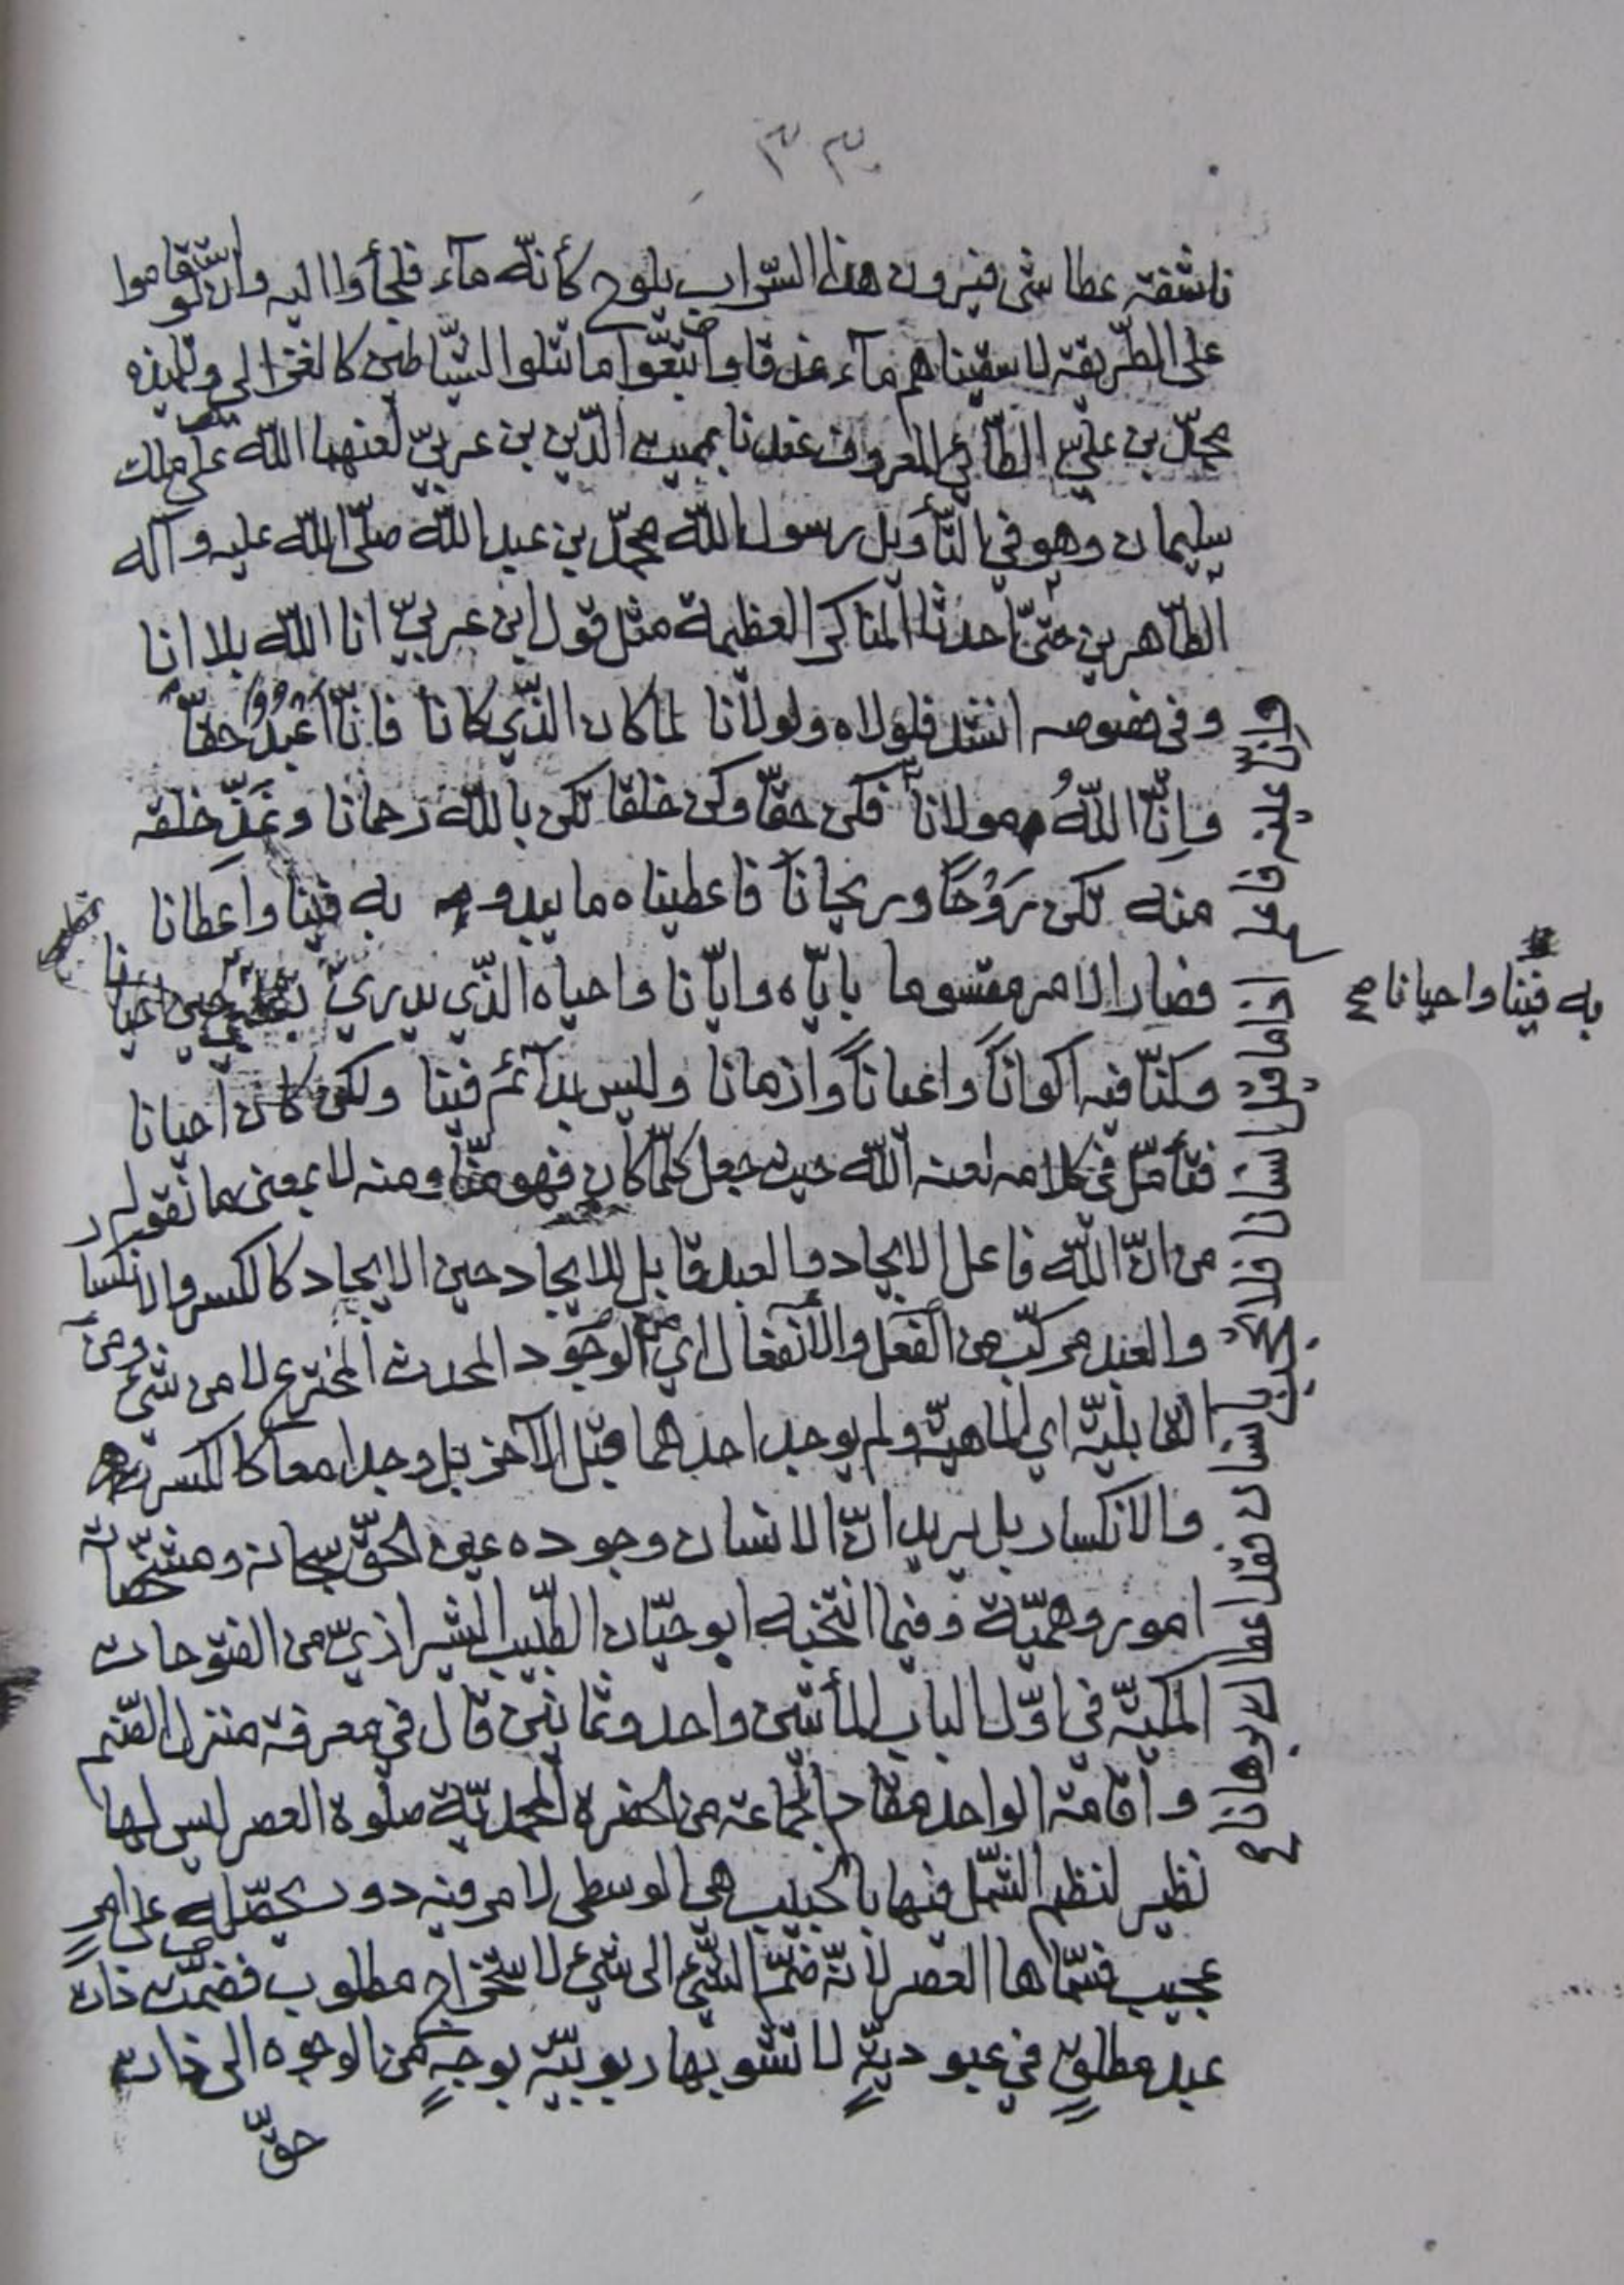 ٣٣
ناشفة عطاشى فيرون هذا السّراب يلوح كأنّه مآء فلجأوا اليه وان لو استقاموا
على الطّريقة لاسقيناهم مآء غدقا واتّبعوا ما تتلوا الشّياطين كالغزالي وتلميذه
محمّد بن عليّ الطّائي المعروف عندنا بمميت الدّين بن عربيّ لعنهما اللّه على ملك
سليمان وهو في التّأويل رسول اللّه محمّد بن عبد اللّه صلّى اللّه عليه وآله
الطّاهرين حتّى احدثا المناكر العظيمة مثل قول ابن عربيّ انا اللّه بلا انا
وفي فصوصه انشد فلولاه ولولانا لما كان الّذي كانا فانّا اعبد حقّا
وانّا اللّه مولانا
وانّا عينه فاعلم اذا ما قيل انسانا فلا تحجب بانسان فقد اعطاك برهانا
فكن حقّا وكن خلقا تكن باللّه رحمانا وغذّ خلقه
منه تكن روحًا وريحانا فاعطيناه ما يبدو به فينا واعطانا
فصار الامر مقسوما بايّاه وايّانا واحياه الّذي يدري بقلبي حين احيانا
به فينا واحيانا صح
وكنّا فيه اكوانًا واعيانًا وازمانا وليس بدآئم فينا ولكن كان احيانا
فتأمّل في كلامه لعنه اللّه حيث جعل كلّما كان فهو منّا ومنه لا بمعنى ما نقول
من انّ اللّه فاعل الايجاد والعبد قابل للايجاد حين الايجاد كالكسر والانكسار
والعبد مركّب من الفعل والانفعال اي من الوجود المحدث المخترع لا من شيء ومن
القابليّة اي الماهيّة ولم يوجد احدهما قبل الآخر بل وجدا معا كالكسر
والانكسار بل يريد انّ الانسان وجوده عين الحقّ سبحانه ومشخّصاته
امور وهميّة وفيما انتخبه ابو حيّان الطّبيب الشيرازيّ من الفتوحات
المكيّة في اوّل الباب المأتين واحد وثمانين قال في معرفة منزل الضّم
واقامة الواحد مقام الجماعة من الحضرة المحمديّة صلوة العصر ليس لها
نظير لنظم الشّمل فيها بالحبيب هي الوسطى لامر فيه دور محصّله على امر
عجيب فسمّاها العصر لانّه ضمّ الشّيء الى شيء لاستخراج مطلوب فضمّت ذات
عبد مطلق في عبوديّةٍ لا تشوبها ربوبيّة بوجهٍ من الوجوه الى ذات
حقّ